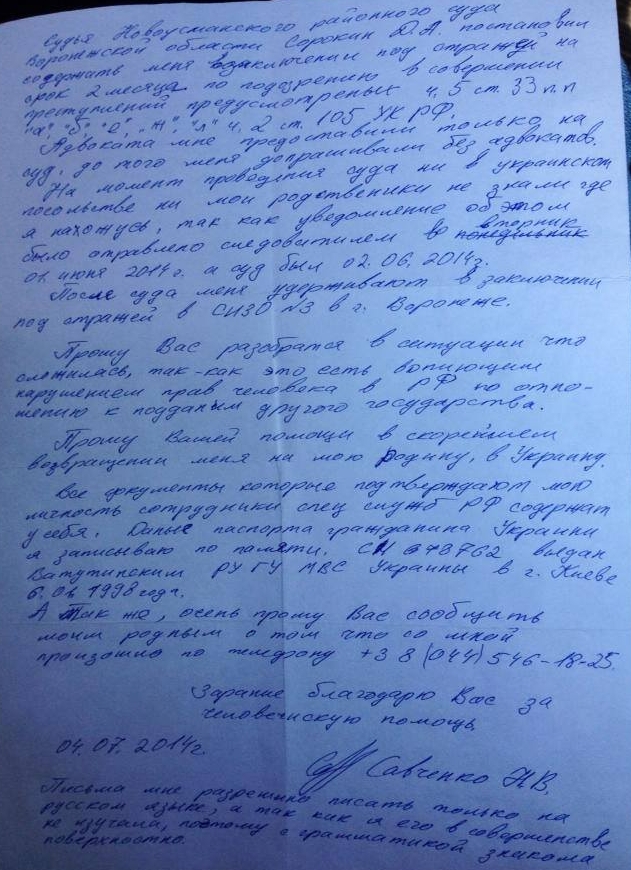 Судья Новоусманского районного суда
Воронежской области Сорокин Д.А. постановил
содержать меня в заключении под стражей на
срок 2 месяца по подозрению в совершении
преступлений предусмотреных ч. 5 ст. 33 п.п
"а", "б", "е", "ж", "л" ч. 2 ст. 105 УК РФ.
Адвоката мне предоставили только на
суд, до того меня допрашивали без адвокатов.
На момент проведения суда ни в украинском
посольстве ни мои родственики не знали где
я нахожусь, так как уведомление об этом
вторник
было отравлено следователем в понедельник
01 июня 2014 г. а суд был 02.06.2014 г.
После суда меня удерживают в заключении
под стражей в СИЗО №3 в г. Воронеже.
Прошу Вас разобратся в ситуации что
сложилась, так-как это есть вопиющим
нарушением прав человека в РФ по отно-
шению к подданым другого государства.
Прошу Вашей помощи в скорейшем
возвращении меня на мою родину, в Украину.
Все документы которые подтверждают мою
личность сотрудники спец служб РФ содержат
у себя. Даные паспорта гражданина Украини
я записываю по памяти. СН 678762 выдан
Ватутинским РУ ГУ МВС Украины в г. Киеве
1998 года.
А так же, очень прошу Вас сообщить
моим родным о том что со мной
произошло по телефону +3 8 (044) 546-18-25.
Зарание благодарю Вас за
человеческую помощь.
04.07.2014г.
Савченко Н.В.
Письма мне разрешино писать только на
русском языке, а так как я его в совершенстве
не изучала, поэтому с грамматикой знакома
поверхностно.